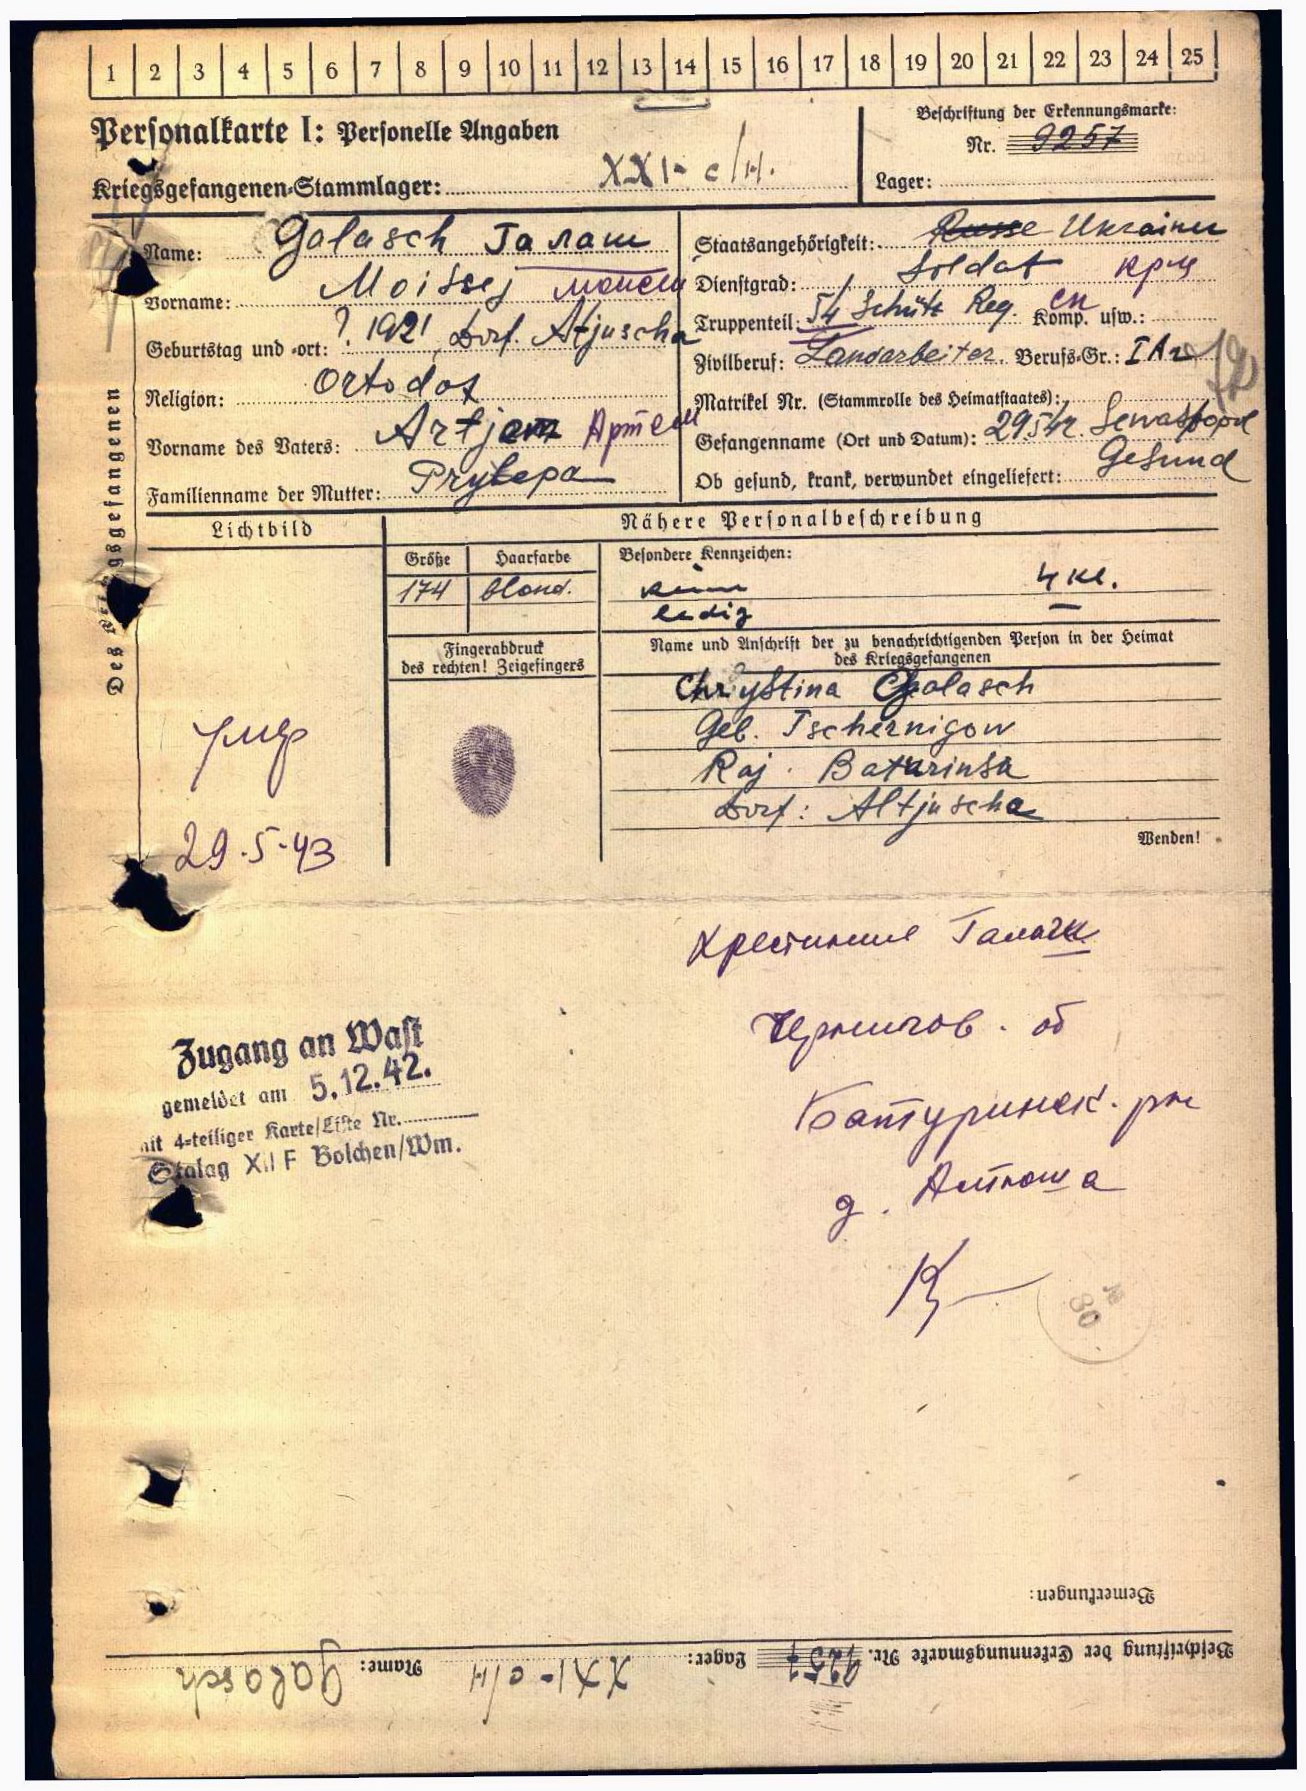 1 2 3 4 5 6 7 8 9 10 11 12 13 14 15 16 17 18 19 20 21 22 23 24 25
Personalkarte I: Personelle Angaben
Kriegsgefangenen-Stammlager: XXI-c/H.
Beschriftung der Erkennungsmarke:
Nr. 9257
Lager:
Des Kriegsgefangenen
Name: Galasch Галаш
Vorname: Moissej
Geburtstag und -ort: ? 1921, Dorf. Atjuscha
Religion: Ortodox
Vorname des Vaters: Artjem Артем
Familienname der Mutter: Prytepa
Staatsangehörigkeit: Russe Ukrainer
Dienstgrad: Soldat крц
Truppenteil: 54 Schütz Reg. сп Komp. usw.:
Zivilberuf: Landarbeiter Berufs-Gr.: I A2
Matrikel Nr. (Stammrolle des Heimatstaates):
Gefangenname (Ort und Datum): Sewastopol
Ob gesund, krank, verwundet eingeliefert: Gesund
Lichtbild
Nähere Personalbeschreibung
Größe
Haarfarbe
Besondere Kennzeichen:
174
blond.
4 kl.
ledig
Fingerabdruck
des rechten! Zeigefingers
Name und Anschrift der zu benachrichtigenden Person in der Heimat
des Kriegsgefangenen
Chrystina Galasch
Geb. Tschernigow
Raj. Baturinsk
Dorf: Altjuscha
Wenden!
29.5.43
Галаш
Чернигов. об
Батуринск. рн
д. Атюша
Zugang an Wast
gemeldet am 5.12.42.
mit 4-teiliger Karte/Liste Nr.
Stalag XII F Bolchen/Wm.
№
80
Bemerkungen:
Beschriftung der Erkennungsmarke Nr. 9257 Lager: XXI-c/H Name: Galasch